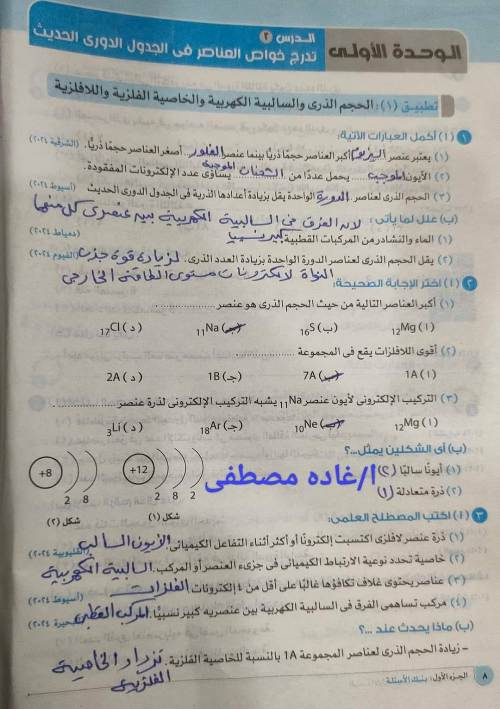 الوحدة الأولى
الدرس ٢
تدرج خواص العناصر فى الجدول الدورى الحديث
تطبيق (١): الحجم الذرى والسالبية الكهربية والخاصية الفلزية واللافلزية
١ (أ) أكمل العبارات الآتية:
(١) يعتبر عنصر السيزيوم أكبر العناصر حجمًا ذريًا بينما عنصر الفلور أصغر العناصر حجمًا ذريًا. (الشرقية ٢٠٢٤)
(٢) الأيون الموجب يحمل عددًا من الشحنات الموجبة يساوى عدد الإلكترونات المفقودة.
(٣) الحجم الذرى لعناصر الدورة الواحدة يقل بزيادة أعدادها الذرية فى الجدول الدورى الحديث (أسيوط ٢٠٢٤)
(ب) علل لما يأتى: لأنه الفرق فى السالبية الكهربية بين عنصرى كل منهما
(١) الماء والنشادر من المركبات القطبية كبير نسبيا (دمياط ٢٠٢٤)
(٢) يقل الحجم الذرى لعناصر الدورة الواحدة بزيادة العدد الذرى. لزيادة قوة جذب (الفيوم ٢٠٢٤)
النواة لإلكترونات مستوى الطاقة الخارجى
٢ (أ) اختر الإجابة الصحيحة:
(١) أكبر العناصر التالية من حيث الحجم الذرى هو عنصر ..................
(أ) 12Mg (ب) 16S (جـ) 11Na (د) 17Cl
(٢) أقوى اللافلزات يقع فى المجموعة ..................
(أ) 1A (ب) 7A (جـ) 1B (د) 2A
(٣) التركيب الإلكترونى لأيون عنصر 11Na يشبه التركيب الإلكترونى لذرة عنصر ..................
(أ) 12Mg (ب) 10Ne (جـ) 18Ar (د) 3Li
(ب) أى الشكلين يمثل...؟
(١) أيونًا سالبًا (٢)
(٢) ذرة متعادلة (١)
أ/غاده مصطفى
+12
2 8 2
شكل (١)
+8
2 8
شكل (٢)
٣ (أ) اكتب المصطلح العلمى:
(١) ذرة عنصر لافلزى اكتسبت إلكترونًا أو أكثر أثناء التفاعل الكيميائى. الأيون السالب (القليوبية ٢٠٢٤)
(٢) خاصية تحدد نوعية الارتباط الكيميائى فى جزىء العنصر أو المركب. السالبية الكهربية
(٣) عناصر يحتوى غلاف تكافؤها غالبًا على أقل من ٤ إلكترونات الفلزات (أسيوط ٢٠٢٤)
(٤) مركب تساهمى الفرق فى السالبية الكهربية بين عنصريه كبير نسبيًا. المركب القطبى (البحيرة ٢٠٢٤)
(ب) ماذا يحدث عند ...؟
- زيادة الحجم الذرى لعناصر المجموعة 1A بالنسبة للخاصية الفلزية. تزداد الخاصية
الفلزية
٨ الجزء الأول: بنك الأسئلة